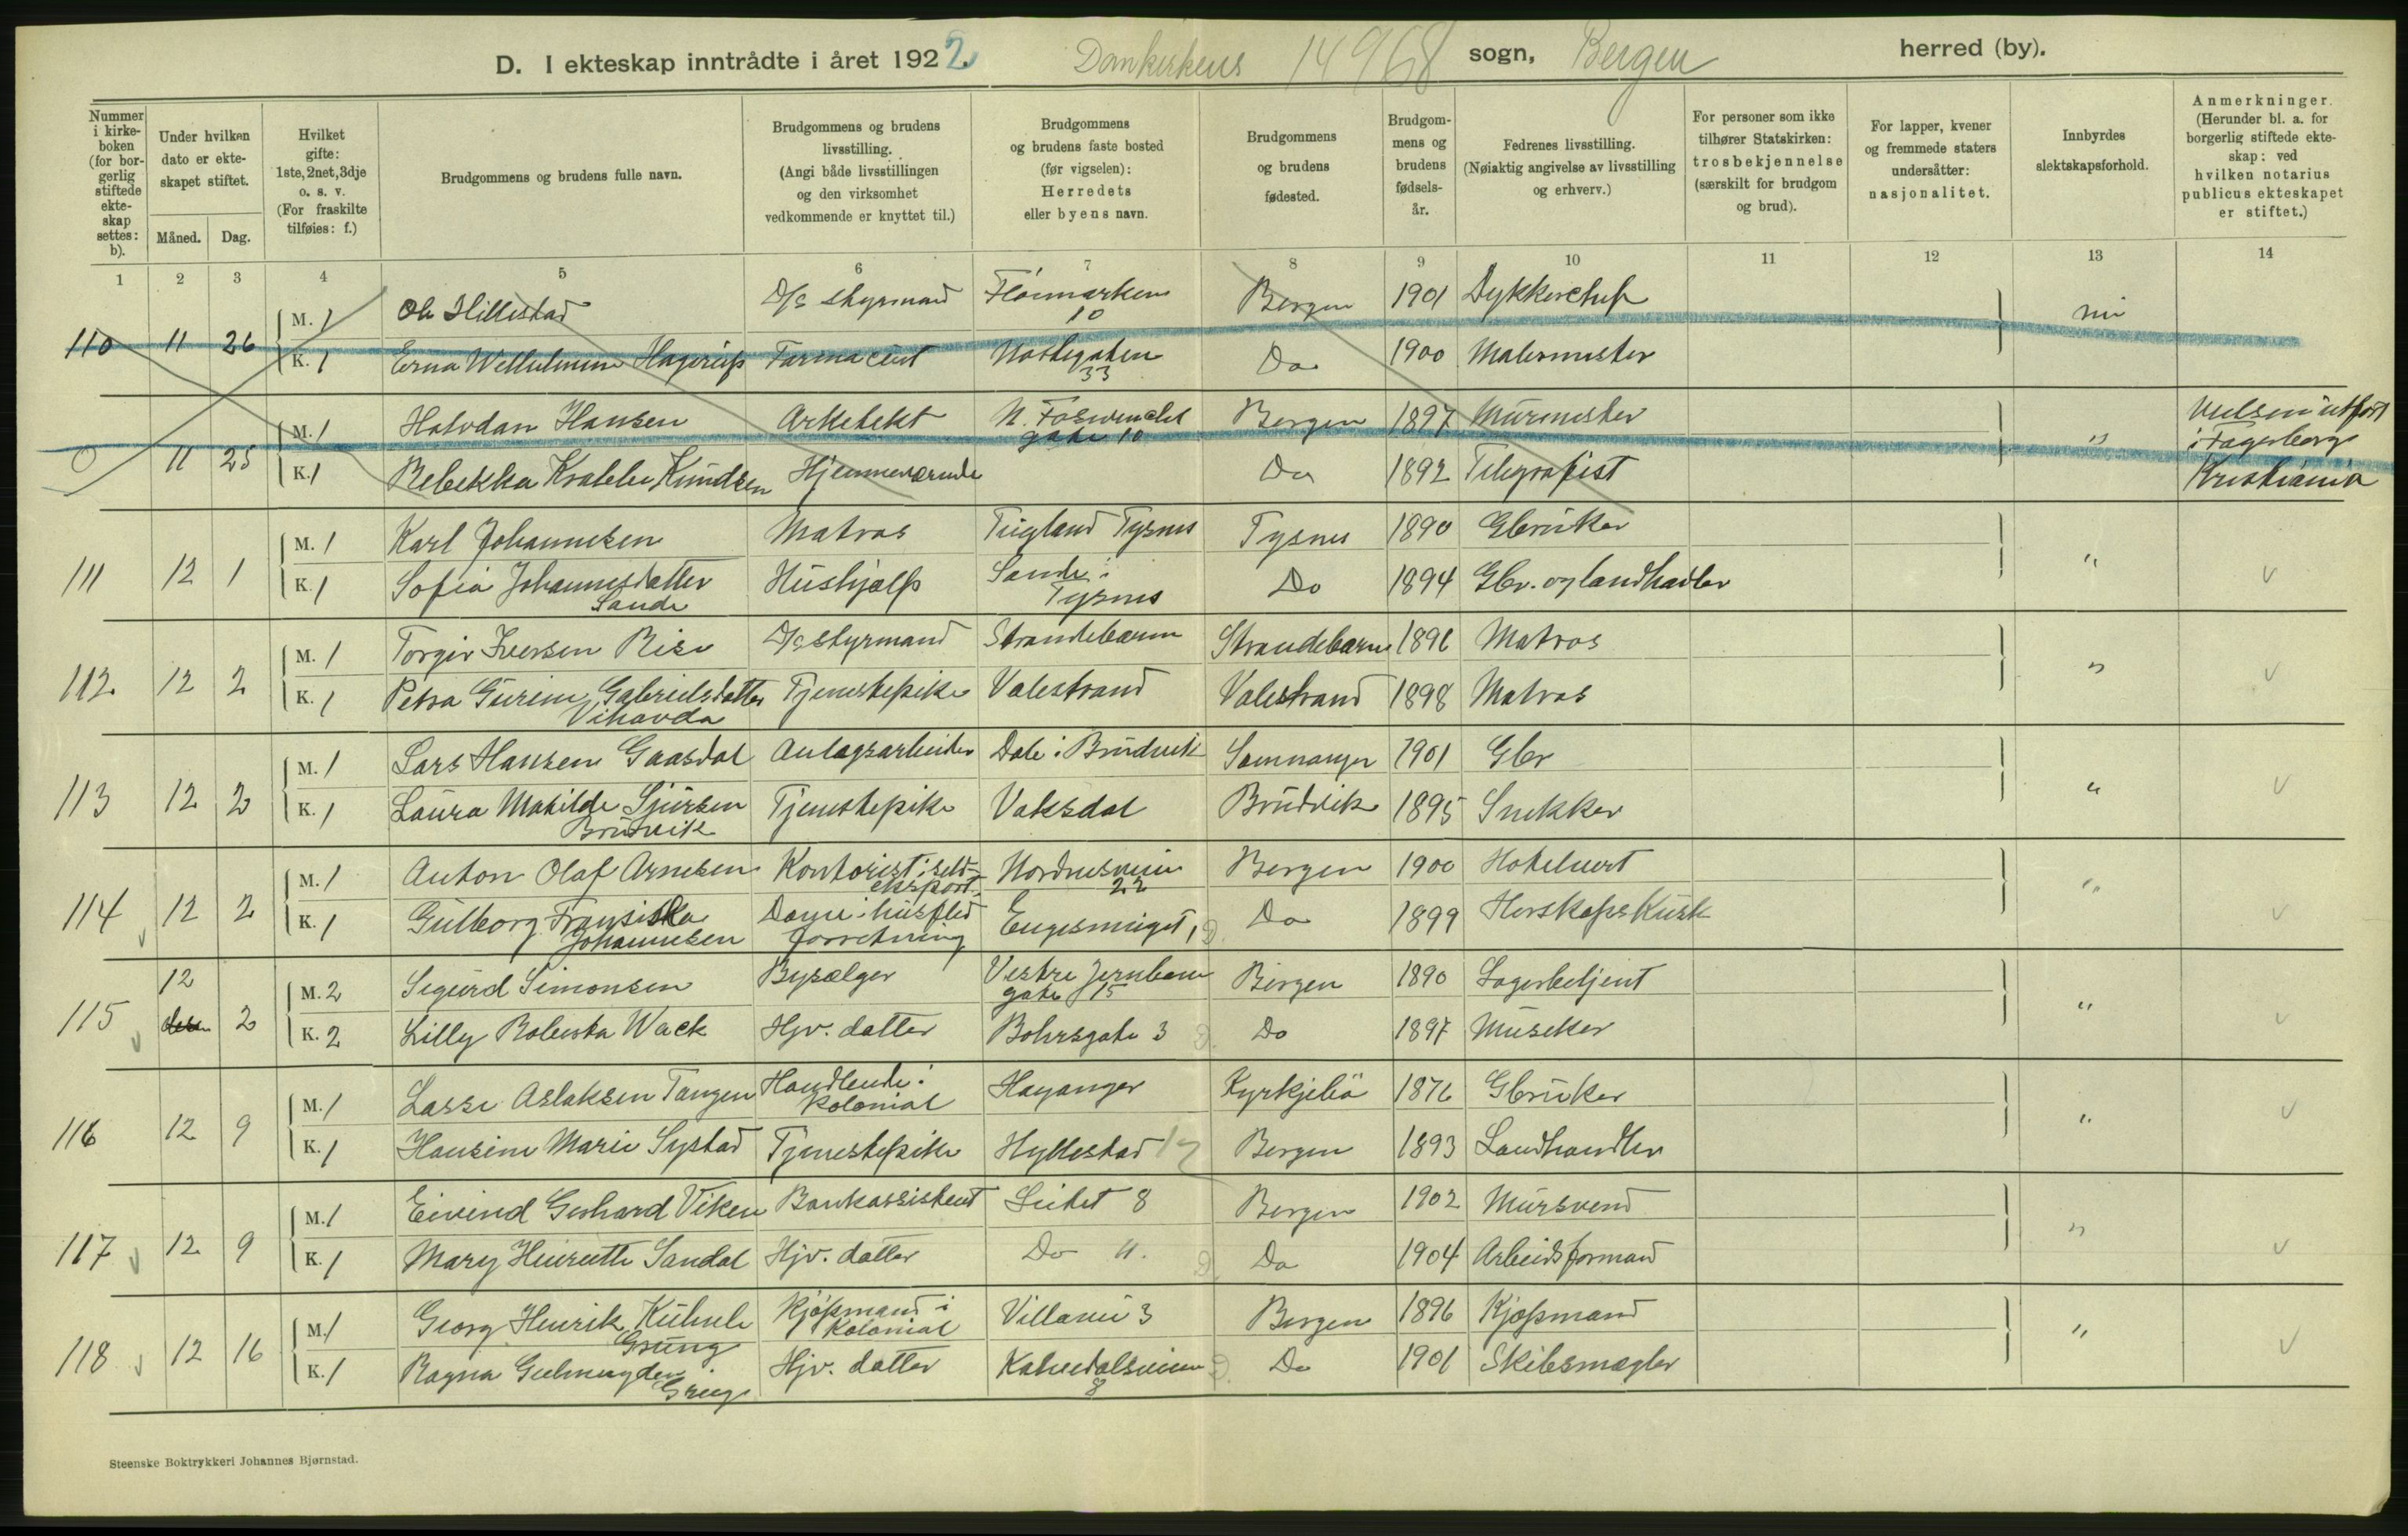 D. I ekteskap inntrådte i året 1922. Domkirkens 14968 sogn, Bergen herred (by).
Nummer i kirkeboken (for borgerlig stiftede ekteskap settes: b).
Under hvilken dato er ekteskapet stiftet.
Måned. Dag.
Hvilket gifte: 1ste, 2net, 3dje o. s. v. (For fraskilte tilføies: f.)
Brudgommens og brudens fulle navn.
Brudgommens og brudens livsstilling. (Angi både livsstillingen og den virksomhet vedkommende er knyttet til.)
Brudgommens og brudens faste bosted (før vigselen): Herredets eller byens navn.
Brudgommens og brudens fødested.
Brudgommens og brudens fødselsår.
Fedrenes livsstilling. (Nøiaktig angivelse av livsstilling og erhverv.)
For personer som ikke tilhører Statskirken: trosbekjennelse (særskilt for brudgom og brud).
For lapper, kvener og fremmede staters undersåtter: nasjonalitet.
Innbyrdes slektskapsforhold.
Anmerkninger. (Herunder bl. a. for borgerlig stiftede ekteskap: ved hvilken notarius publicus ekteskapet er stiftet.)
1 2 3 4 5 6 7 8 9 10 11 12 13 14
110 11 26 M. 1 Ole Hillestad D/s styrmand Fløimarken 10 Bergen 1901 Dykkerchef nei
K. 1 Erna Wilhelmine Hagerup Farmaceut Nostegaten 33 Do 1900 Malermester
0 11 25 M. 1 Halvdan Hansen Arkitekt N. Fosswinckels gate 10 Bergen 1897 Murmester " Vielsen utført i Fagerborg Kristiania
K. 1 Rebekka Krabbe Knudsen Hjemmeværende Do 1892 Telegrafist
111 12 1 M. 1 Karl Johannesen Matros Tugland Tysnes Tysnes 1890 Gbruker "
K. 1 Sofia Johannesdatter Sande Hushjælp Sande i Tysnes Do 1894 Gbr. og landhadler v
112 12 2 M. 1 Torgeir Iversen Rise D/s styrmand Strandebarm Strandebarm 1896 Matros "
K. 1 Petra Gurine Gabrielsdatter Vihovda Tjenestepike Valestrand Valestrand 1898 Matros v
113 12 2 M. 1 Lars Hansen Gaasdal Anlægsarbeider Dale i Bruvik Samnanger 1901 Gbr "
K. 1 Laura Matilde Sjursen Bruvik Tjenestepike Vaksdal Brudvik 1895 Snekker v
114 12 2 M. 1 Anton Olaf Arnesen Kontorist i sildeksport Nordnesveien 22 Bergen 1900 Hotelvert "
K. 1 Gulborg Fransiska Johannesen Dame i husflid forretning Engesmuget 1 Do 1899 Herskapskusk v
115 12 2 M. 2 Sigurd Simonsen Bysælger Vestre Jernbane gate 15 Bergen 1890 Lagerbetjent "
K. 2 Lilly Roberta Wack Hjv. datter Bohrsgate 3 Do 1897 Musiker v
116 12 9 M. 1 Lasse Aslaksen Tangen Handlende i kolonial Høyanger Kyrkjebø 1876 Gbruker "
K. 1 Hansine Marie Systad Tjenestepike Hyllestad Bergen 1893 Landhandler v
117 12 9 M. 1 Eivind Gerhard Viken Bankassistent Leitet 8 Bergen 1902 Mursvend "
K. 1 Mary Henriette Sandal Hjv. datter Do 11. Do 1904 Arbeidsformand v
118 12 16 M. 1 Georg Henrik Kühnle Grung Kjøpmand i kolonial Villavei 3 Bergen 1896 Kjøpmand "
K. 1 Ragna Grieg Hjv. datter Kalvedalsveien 8 Do 1901 Skibsmægler v
Steenske Boktrykkeri Johannes Bjørnstad.